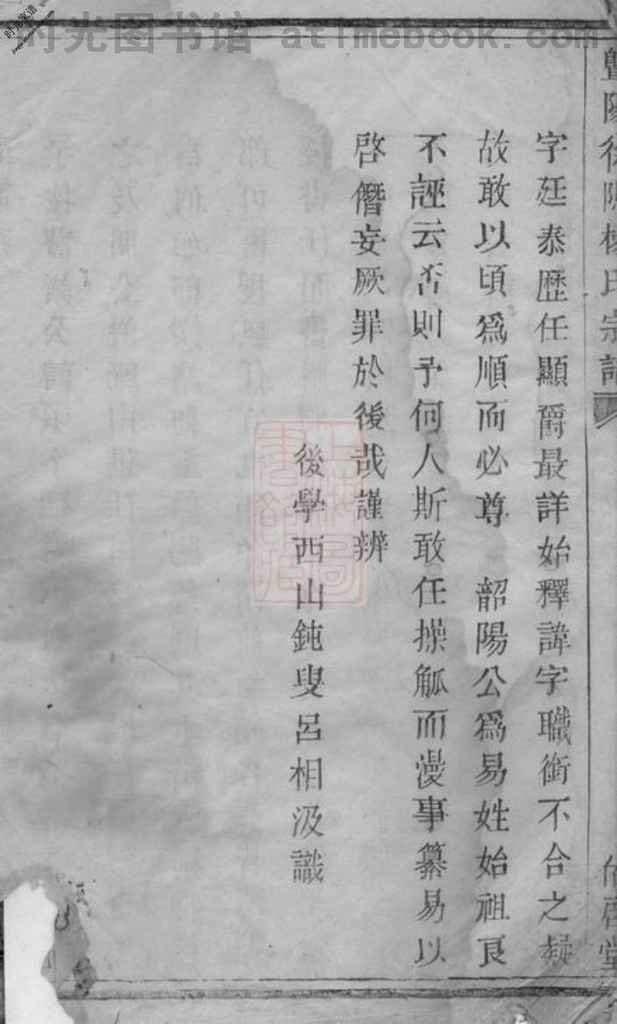 时光图书馆 atimebook.com
暨陽 楊氏宗譜
啓堂
字廷泰歷任顯爵最詳始釋諱字職銜不合之疑
故敢以頃爲順而必尊 韶陽公爲易姓始祖良
不誣云否則予何人斯敢任操觚而漫事纂易以
啓僭妄厥罪於後哉謹辨
後學西山鈍叟呂相汲識